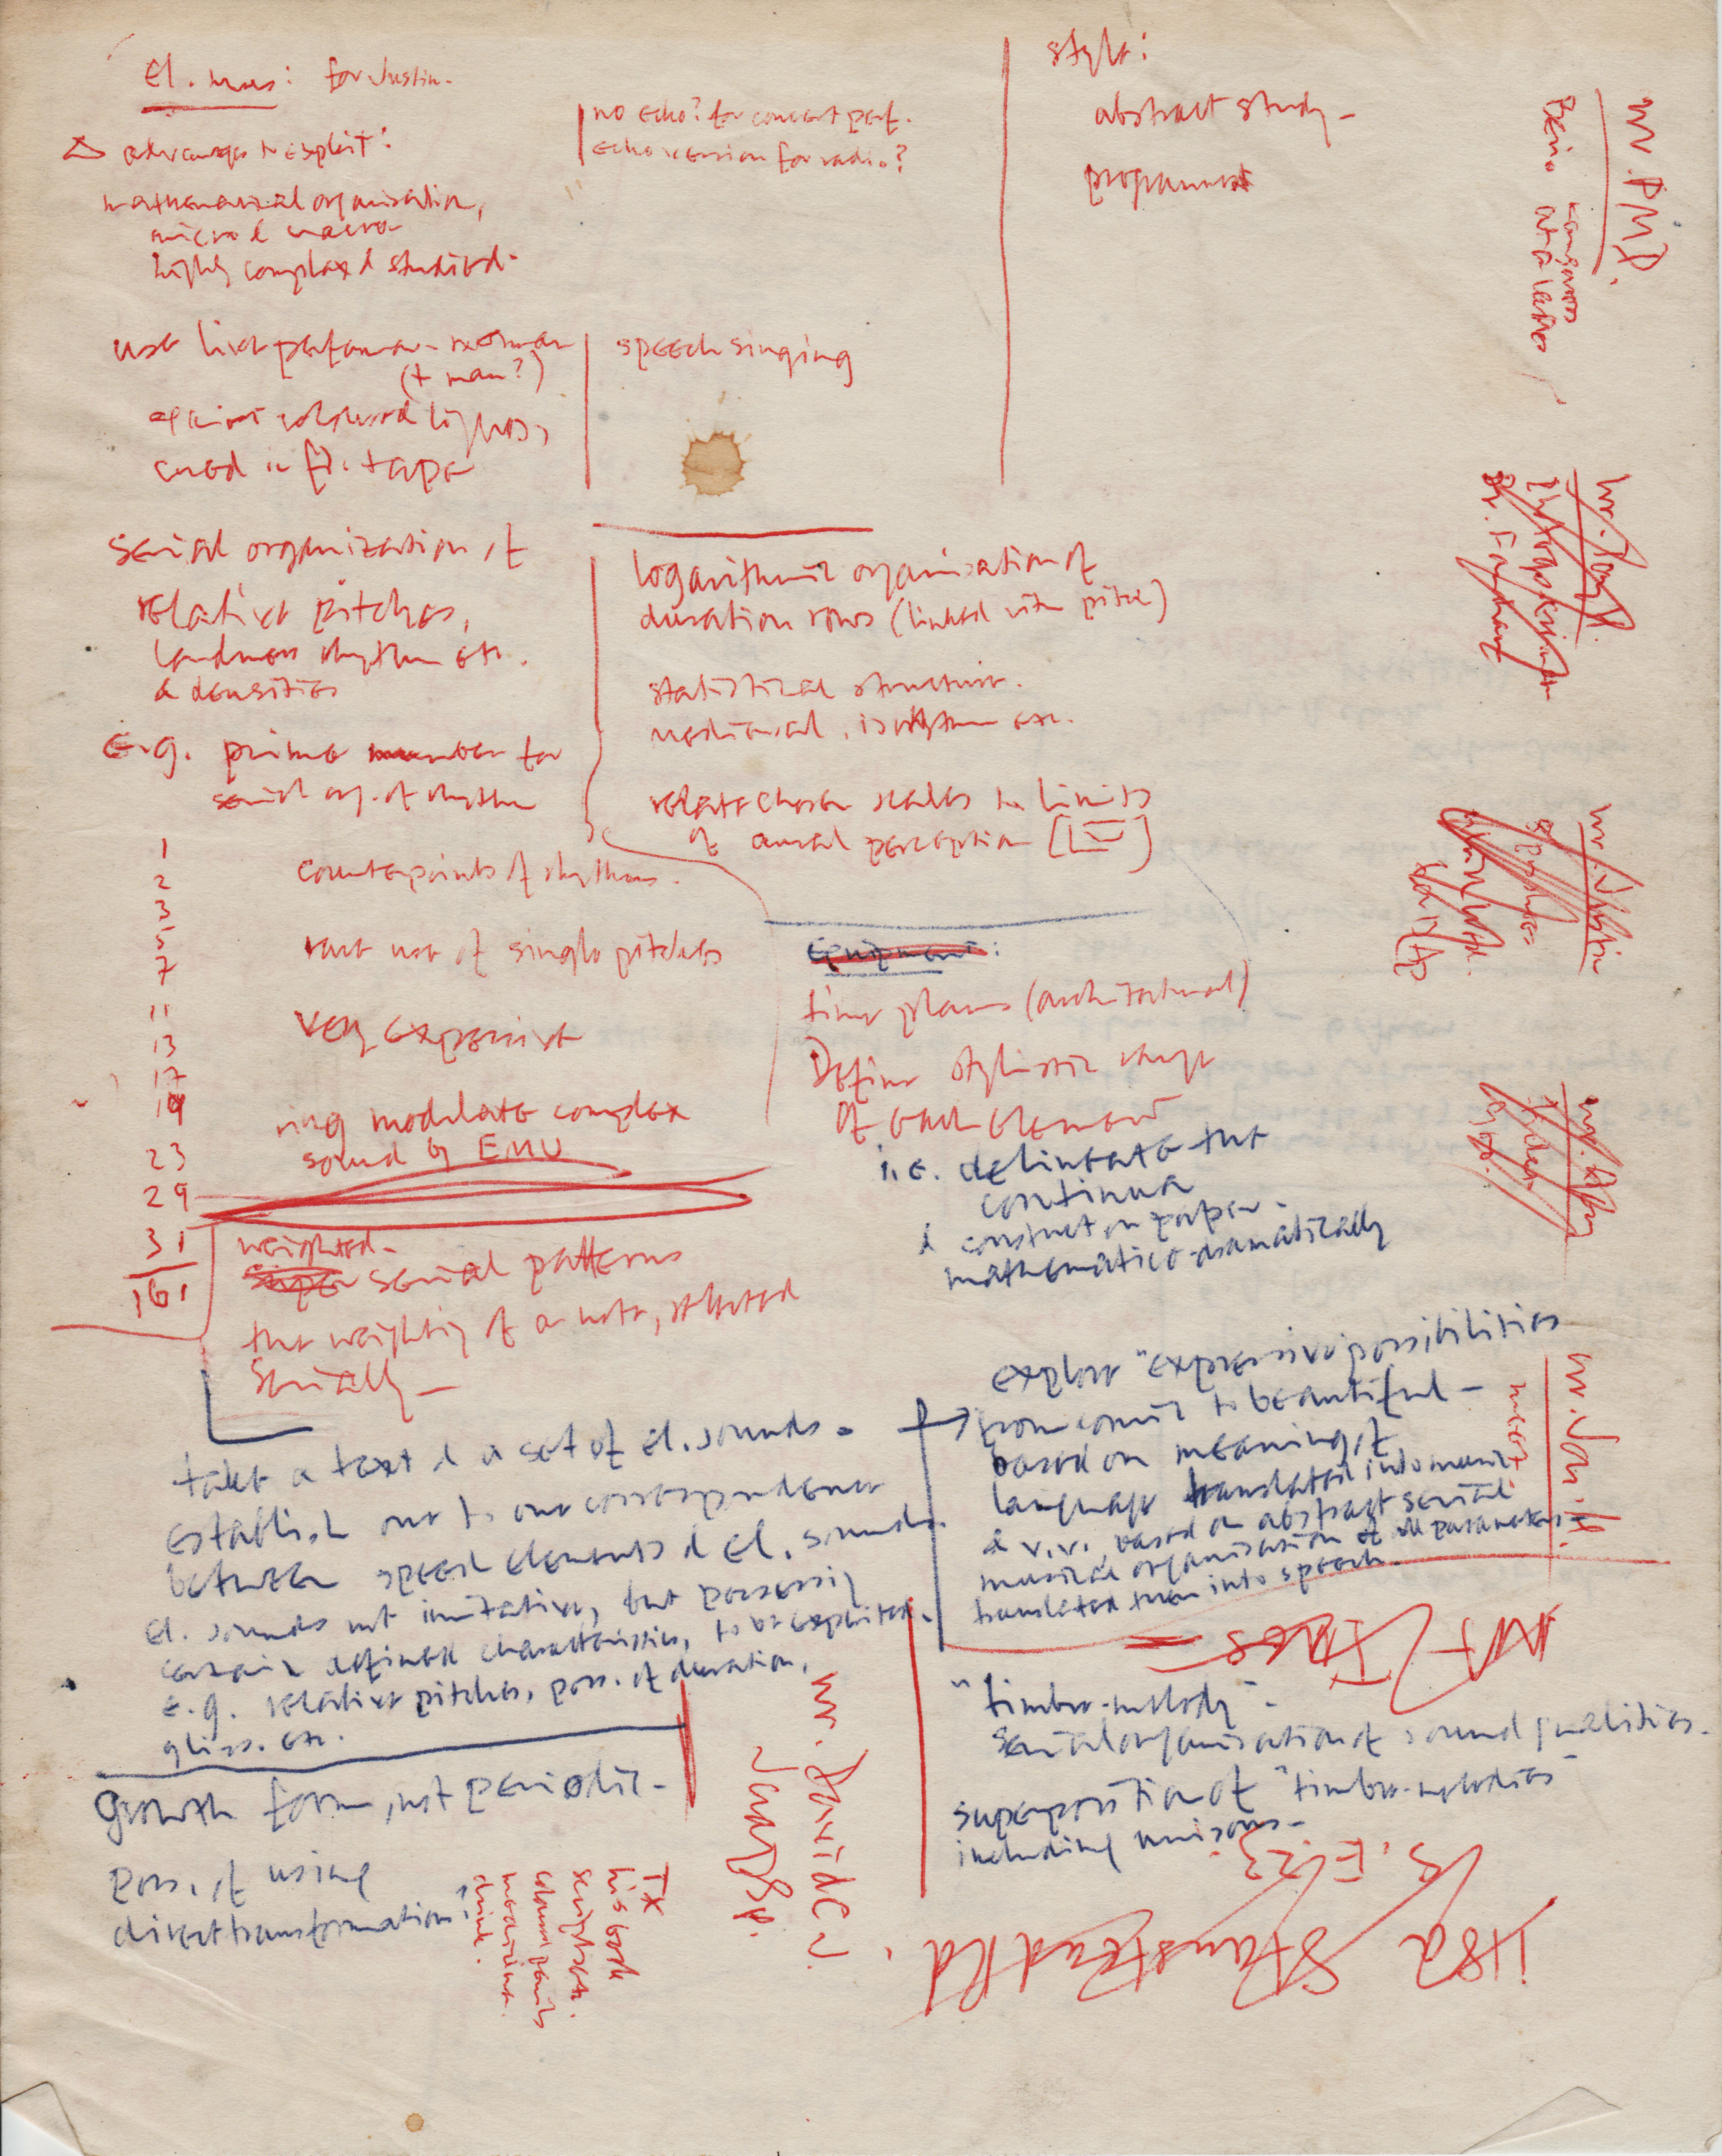 El. mus: for Justin.
advantages to exploit:
mathematical organisation,
micro & macro
highly complex & studied.
no echo? for concert perf.
echo version for radio?
style:
abstract study -
programmat
use live performer - woman
(+ man?)
against coloured lights,
cued in f. tape
speech singing
serial organization of
relative pitches,
loudness rhythm etc.
& densities
E.g. prime number for
serial org. of rhythm
logarithmic organisation of
duration rows (linked with pitch)
statistical structure.
mediaeval isorhythm etc.
relate chosen scales to limits
of aural perception
1
2
3
5
7
11
13
17
19
23
29
31
161
counterpoints of rhythms.
rare use of single pitches
very expressive
ring modulate complex
sound by EMU
Equipment:
time plans (architectural)
Define stylistic range
of each element
i.e. delineate the
continua
& construct on paper -
mathematico-dramatically
weighted -
super serial patterns
the weighting of a note, selected
serially -
take a text & a set of el. sounds.
establish one to one correspondence
between speech elements & el. sounds.
El. sounds not imitative, but possessing
certain defined characteristics, to be exploited.
e.g. relative pitches, poss. of duration,
gliss. etc.
explore "expressive possibilities
from comic to beautiful -
based on meaning of
language translated into music
& v.v. based on abstract serial
musical organisation of all parameters -
translated then into speech.
"timbre-melody" -
serial organisation of sound qualities.
superposition of "timbre-melodies"
including unisons -
Growth form, not periodic -
poss. of using
direct transformation?
wr. PMD.
Berio
wr. Tony
Dr.
wr. Justin
wr.
wr. Jon. H.
meet
wr. David C J.
TX
his book
coloured pencils
medicine.
drink.
S.E.23
118a Stanstead Rd.